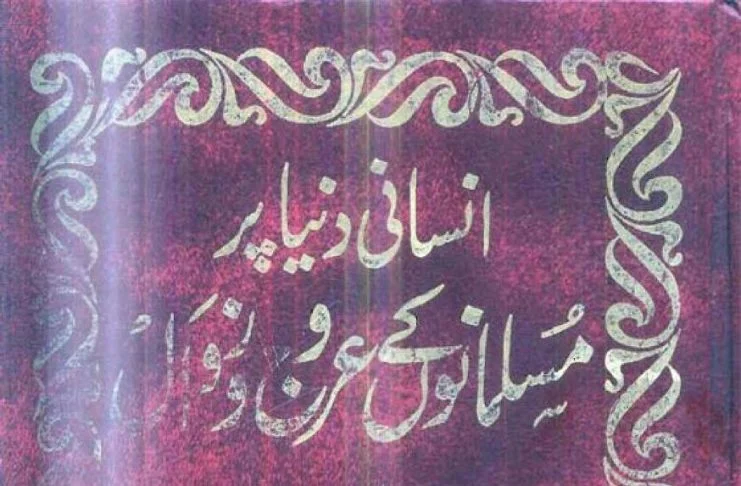 انسانی دنیا پر
مُسلمانوں کے عروج و زوال